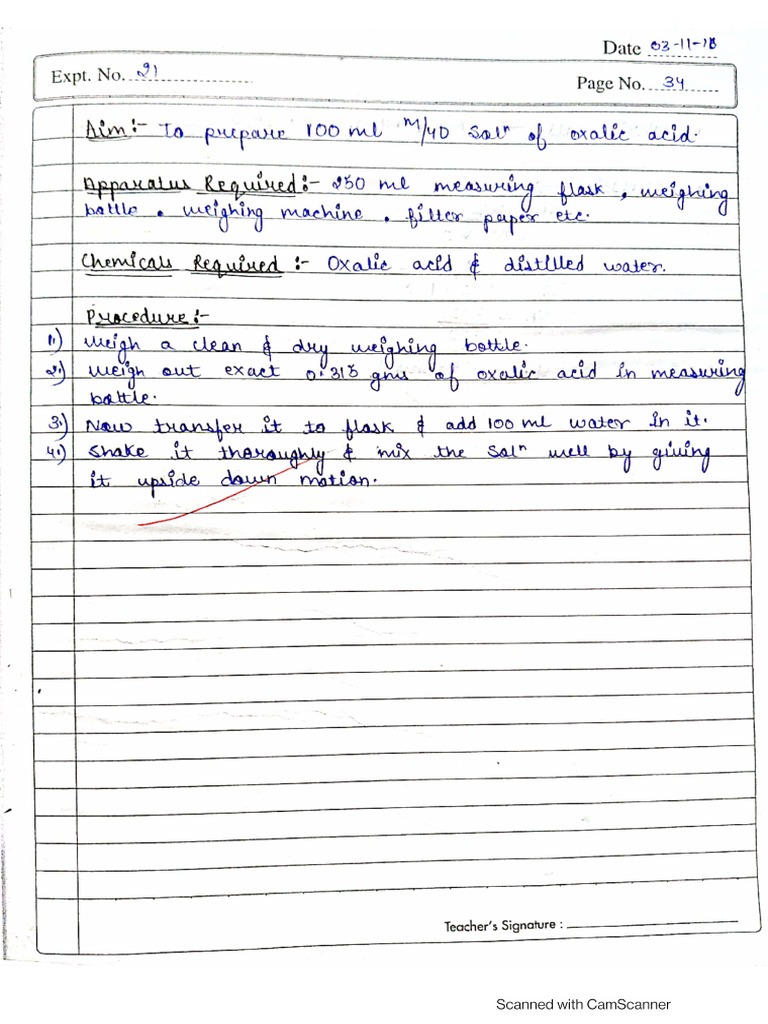 Date 03-11-18
Expt. No. 21
Page No. 34
Aim:- To prepare 100 ml M/40 Solⁿ of oxalic acid.
Apparatus Required:- 250 ml measuring flask, weighing
bottle, weighing machine, filter paper etc.
Chemicals Required :- Oxalic acid & distilled water.
Procedure:-
1.) Weigh a clean & dry weighing bottle.
2.) Weigh out exact 0.315 gms of oxalic acid in measuring
bottle.
3.) Now transfer it to flask & add 100 ml water in it.
4.) Shake it thoroughly & mix the Solⁿ well by giving
it upside down motion.
Teacher's Signature :
Scanned with CamScanner